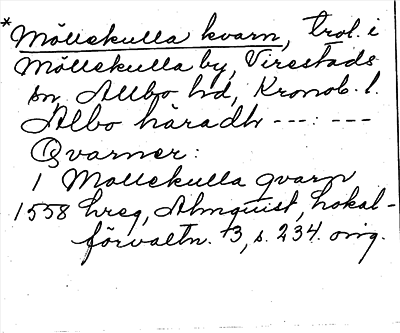 *Möllekulla kvarn, trol. i
Möllekulla by, Virestads
sn, Allbo hd, Kronob. l.
Albo häradh ---:---
Qvarner:
1 Mollekulla qvarn
1558 hreg, Almquist, Lokal-
förvaltn. 3, s. 234. orig.